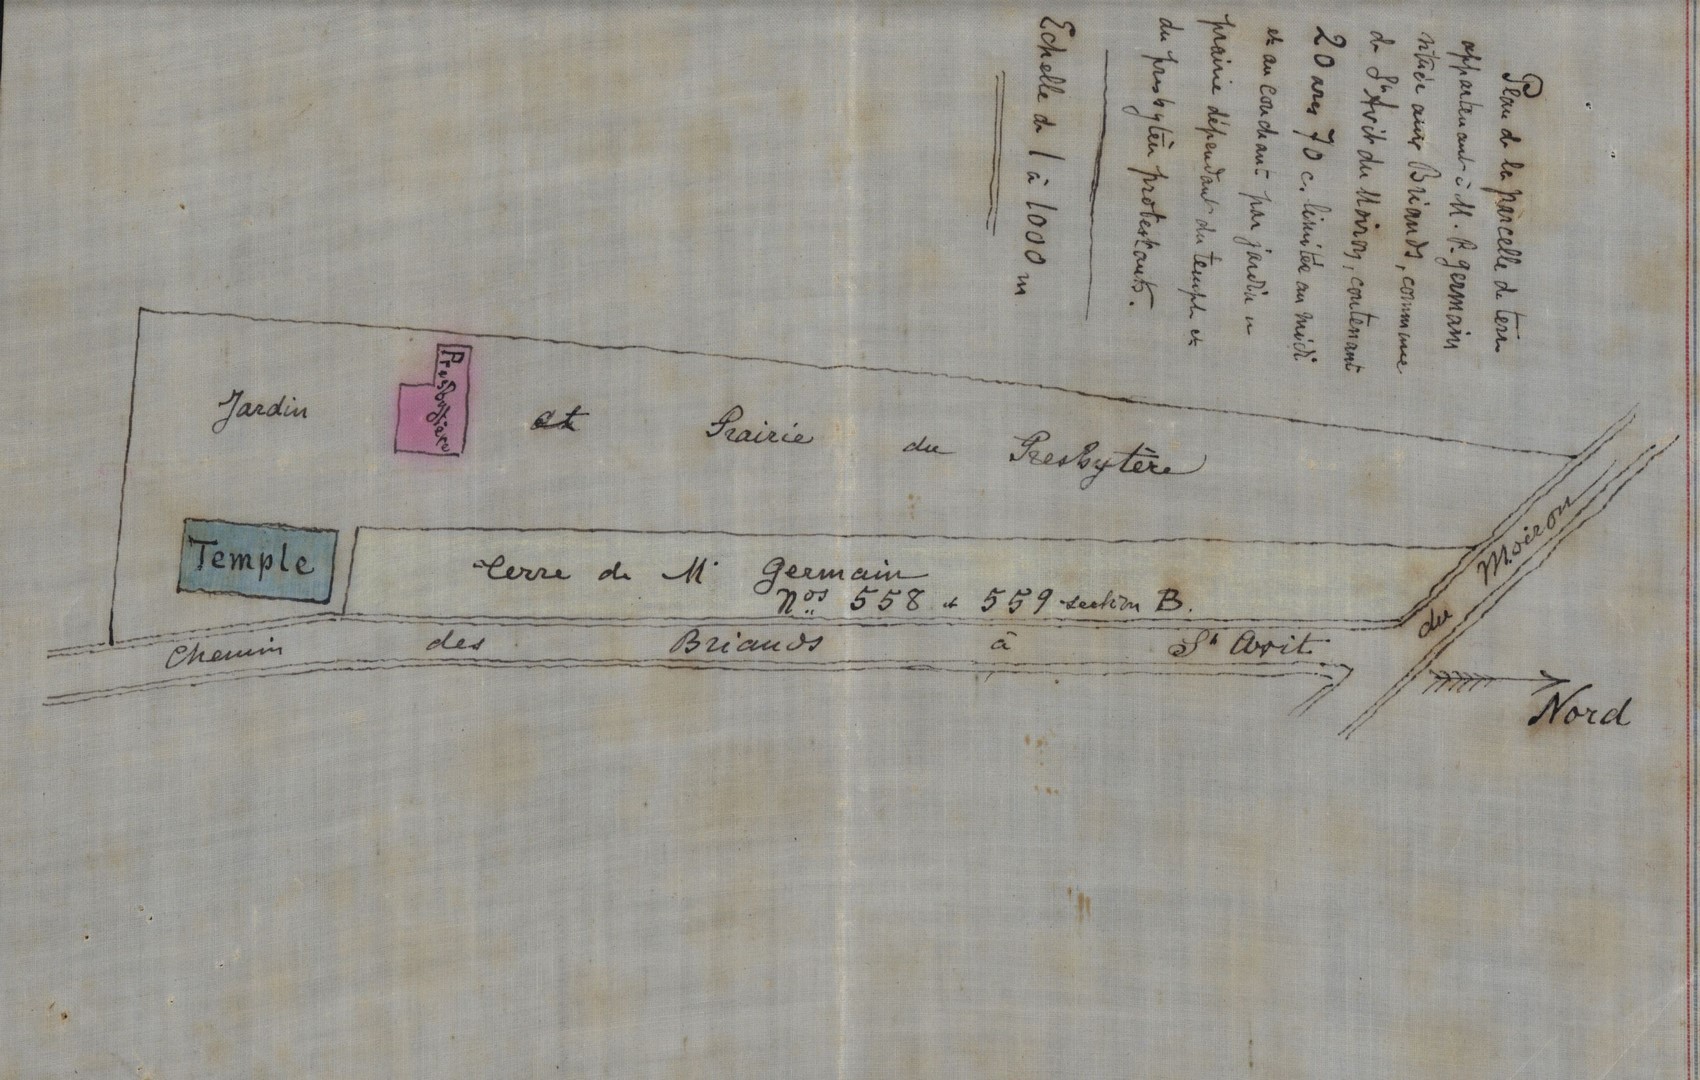 Plan de la parcelle de terre
appartenant à M. P. Germain
située aux Briands, commune
de St Avit du Moiron, contenant
20 ares 70 c. limitée au midi
et au couchant par jardin et
prairie dépendant du temple et
du presbytère protestants.
Echelle de 1 à 1000 m
Presbytère
Jardin et Prairie du Presbytère
Temple
Terre de Mr Germain
nos 558 et 559 section B.
Chemin des Briands à St Avit
du Moiron
Nord